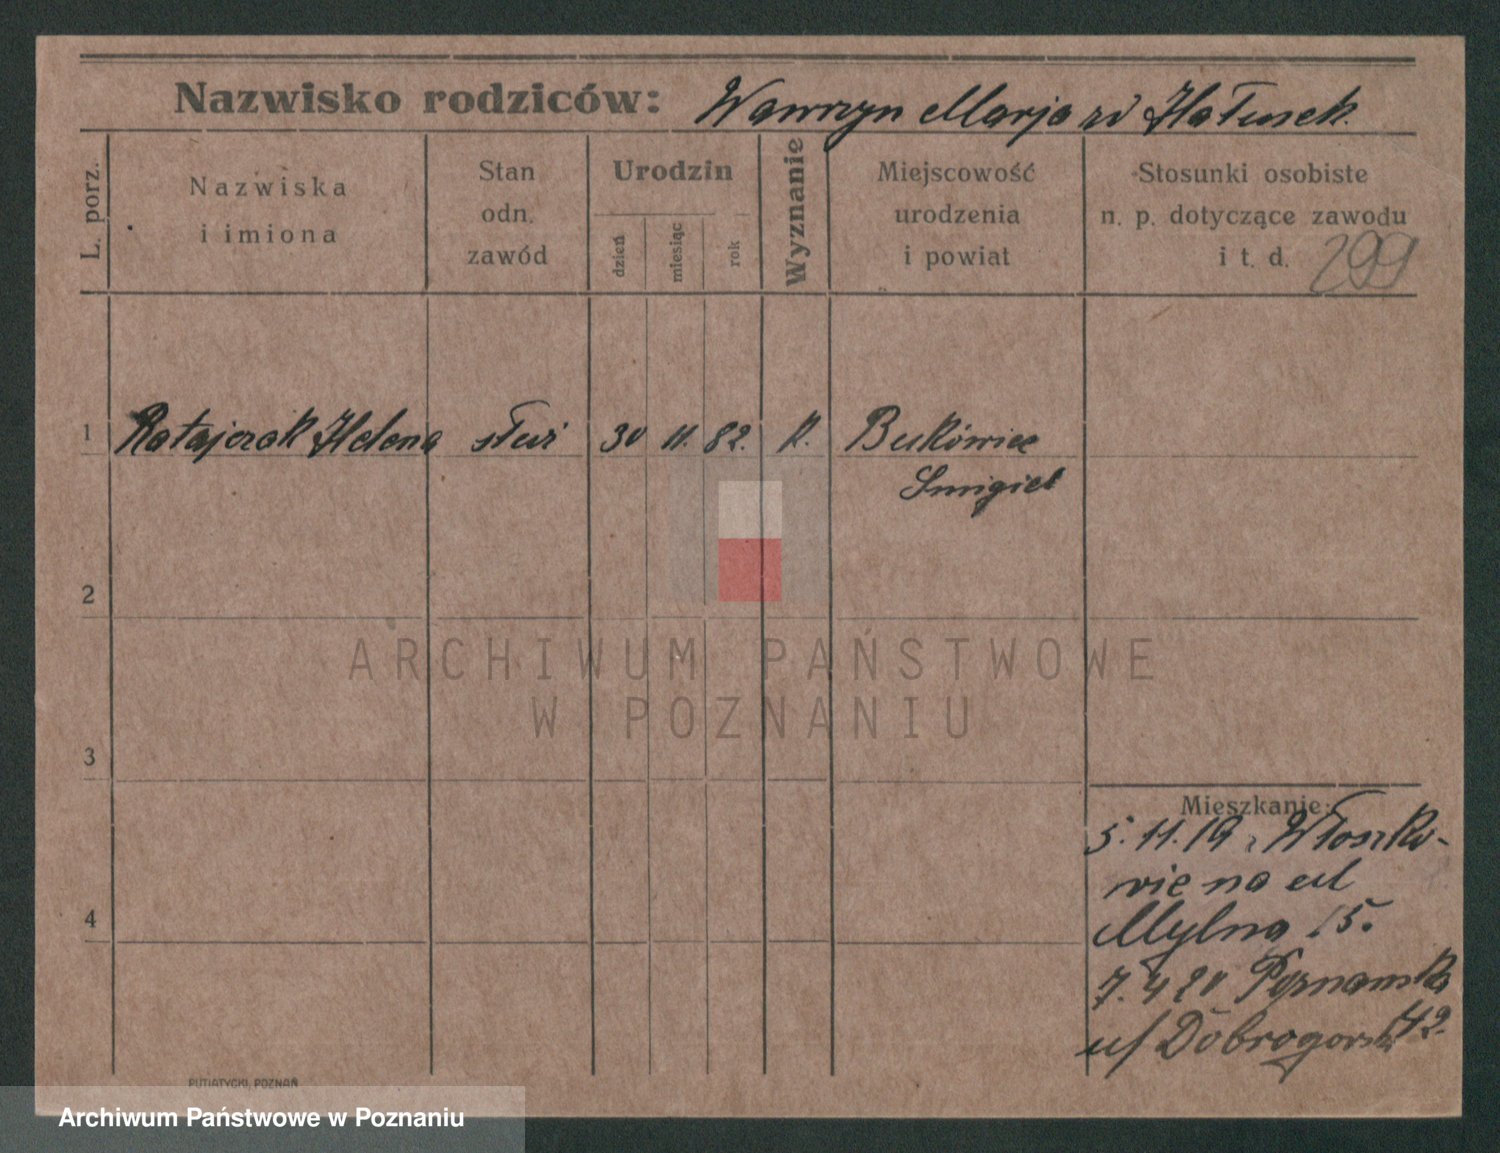 Nazwisko rodziców: Wawrzyn Marja zd Hałusek.
L. porz.
Nazwiska
i imiona
Stan
odn.
zawód
Urodzin
dzień
miesiąc
rok
Wyznanie
Miejscowość
urodzenia
i powiat
Stosunki osobiste
n. p. dotyczące zawodu
i t. d.
299
1 Ratajczak Helena służ 30 11. 82. k. Bukówiec
Smigiel
2
3
4
Mieszkanie:
5. 11. 19 z Włoszko-
wic na ul
Mylna 15.
7. 4 20 Poznańska 42.
ul Dobrogorska
PUTIATYCKI, POZNAŃ
ARCHIWUM PAŃSTWOWE
W POZNANIU
Archiwum Państwowe w Poznaniu